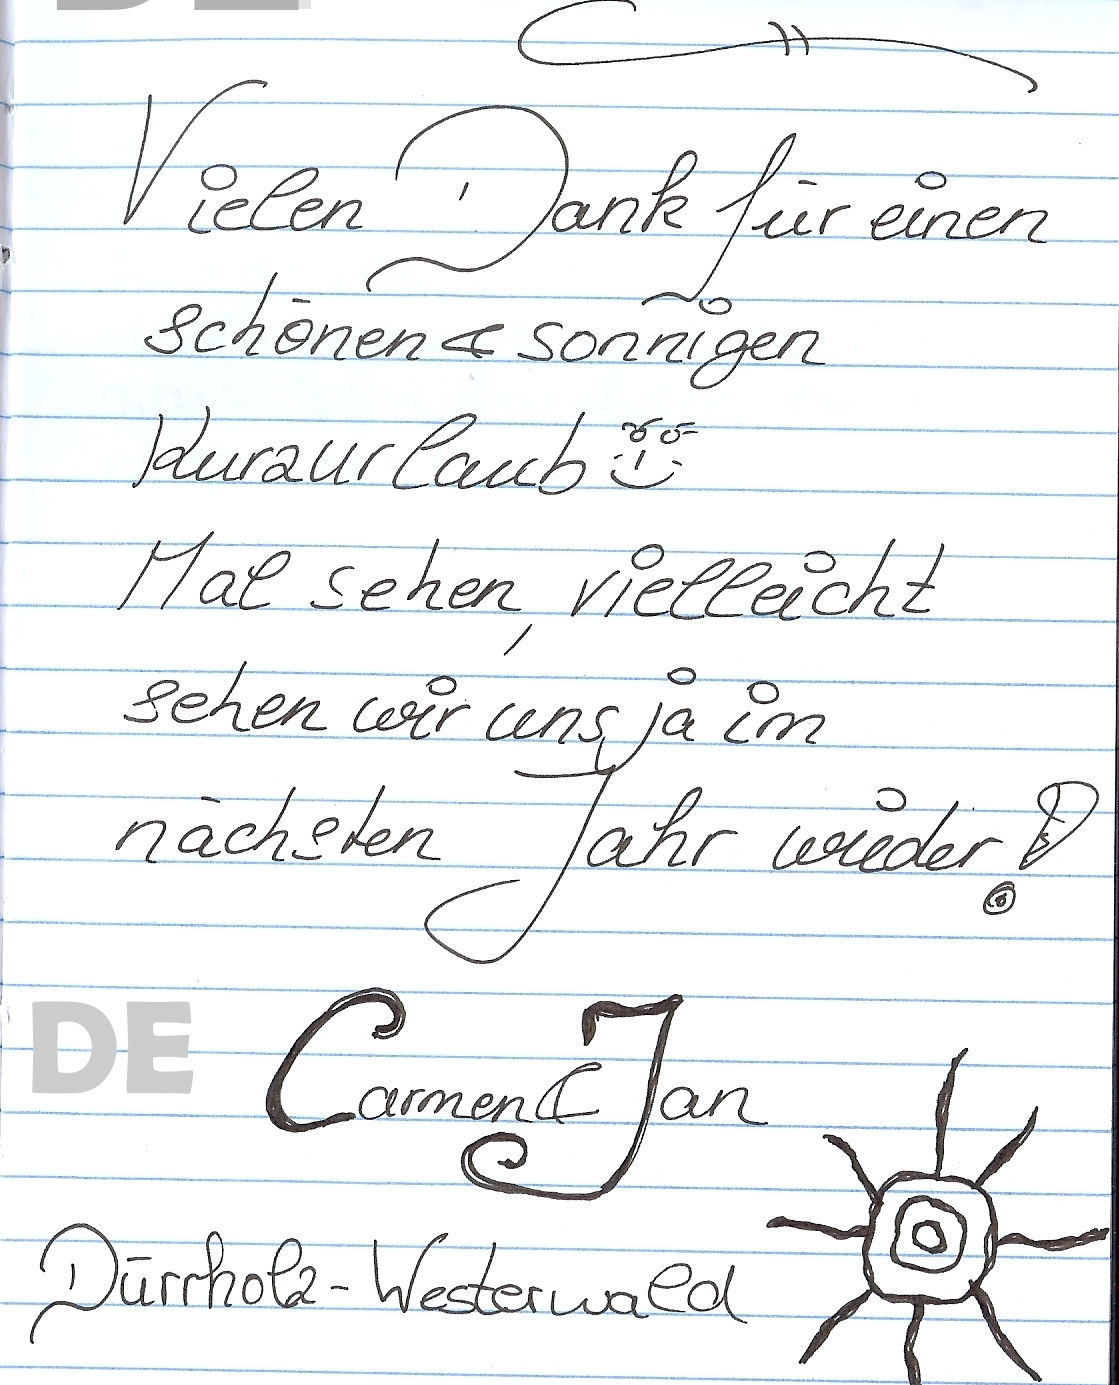 DE
Vielen Dank für einen
schönen & sonnigen
Kurzurlaub
Mal sehen, vielleicht
sehen wir uns ja im
nächsten Jahr wieder!
DE
Carmen & Jan
Dürrholz - Westerwald